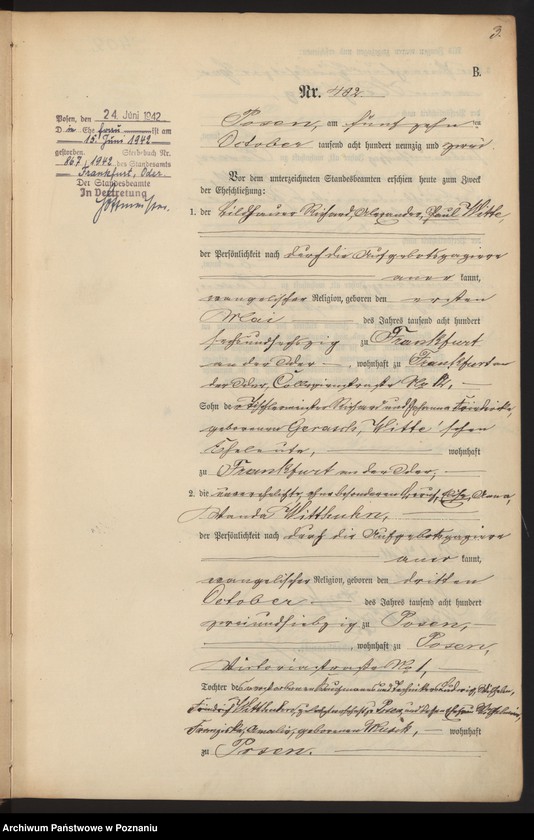 3.
B.
Nr. 402
Posen, den 24. Juni 1942
Die Ehefrau ist am
15. Juni 1942
gestorben. Sterbebuch Nr.
867/1942 des Standesamts
Frankfurt, Oder
Der Standesbeamte
In Vertretung
Posen, am fünfzehnten
October tausend acht hundert neunzig und zwei.
Vor dem unterzeichneten Standesbeamten erschien heute zum Zweck
der Eheschließung:
1. der Bildhauer Richard, Alexander, Paul Witte,
der Persönlichkeit nach durch die Aufgebotspapiere
aner kannt,
evangelischer Religion, geboren den ersten
Mai des Jahres tausend acht hundert
sechsundsechzig zu Frankfurt
an der Oder, wohnhaft zu Frankfurt an
der Oder, Collegienstraße No
Sohn des Tischlermeister Richard und Johanna Friedericke,
geborenen Witte'schen
Eheleute, wohnhaft
zu Frankfurt an der Oder,
2. die unverehelichte, ohne besonderen Beruf, Anna,
Wanda
der Persönlichkeit nach durch die Aufgebotspapiere
aner kannt,
evangelischer Religion, geboren den dritten
October des Jahres tausend acht hundert
zweiundsiebzig zu Posen,
wohnhaft zu Posen,
Victoriastraße No 1,
Tochter des verstorbenen Kaufmanns und Technikers Ludwig, Wilhelm,
Friedrich zuletzt wohnhaft in Posen und dessen Ehefrau Wilhelmine,
Franziska, Amalie, geborenen wohnhaft
zu Posen.
Archiwum Państwowe w Poznaniu